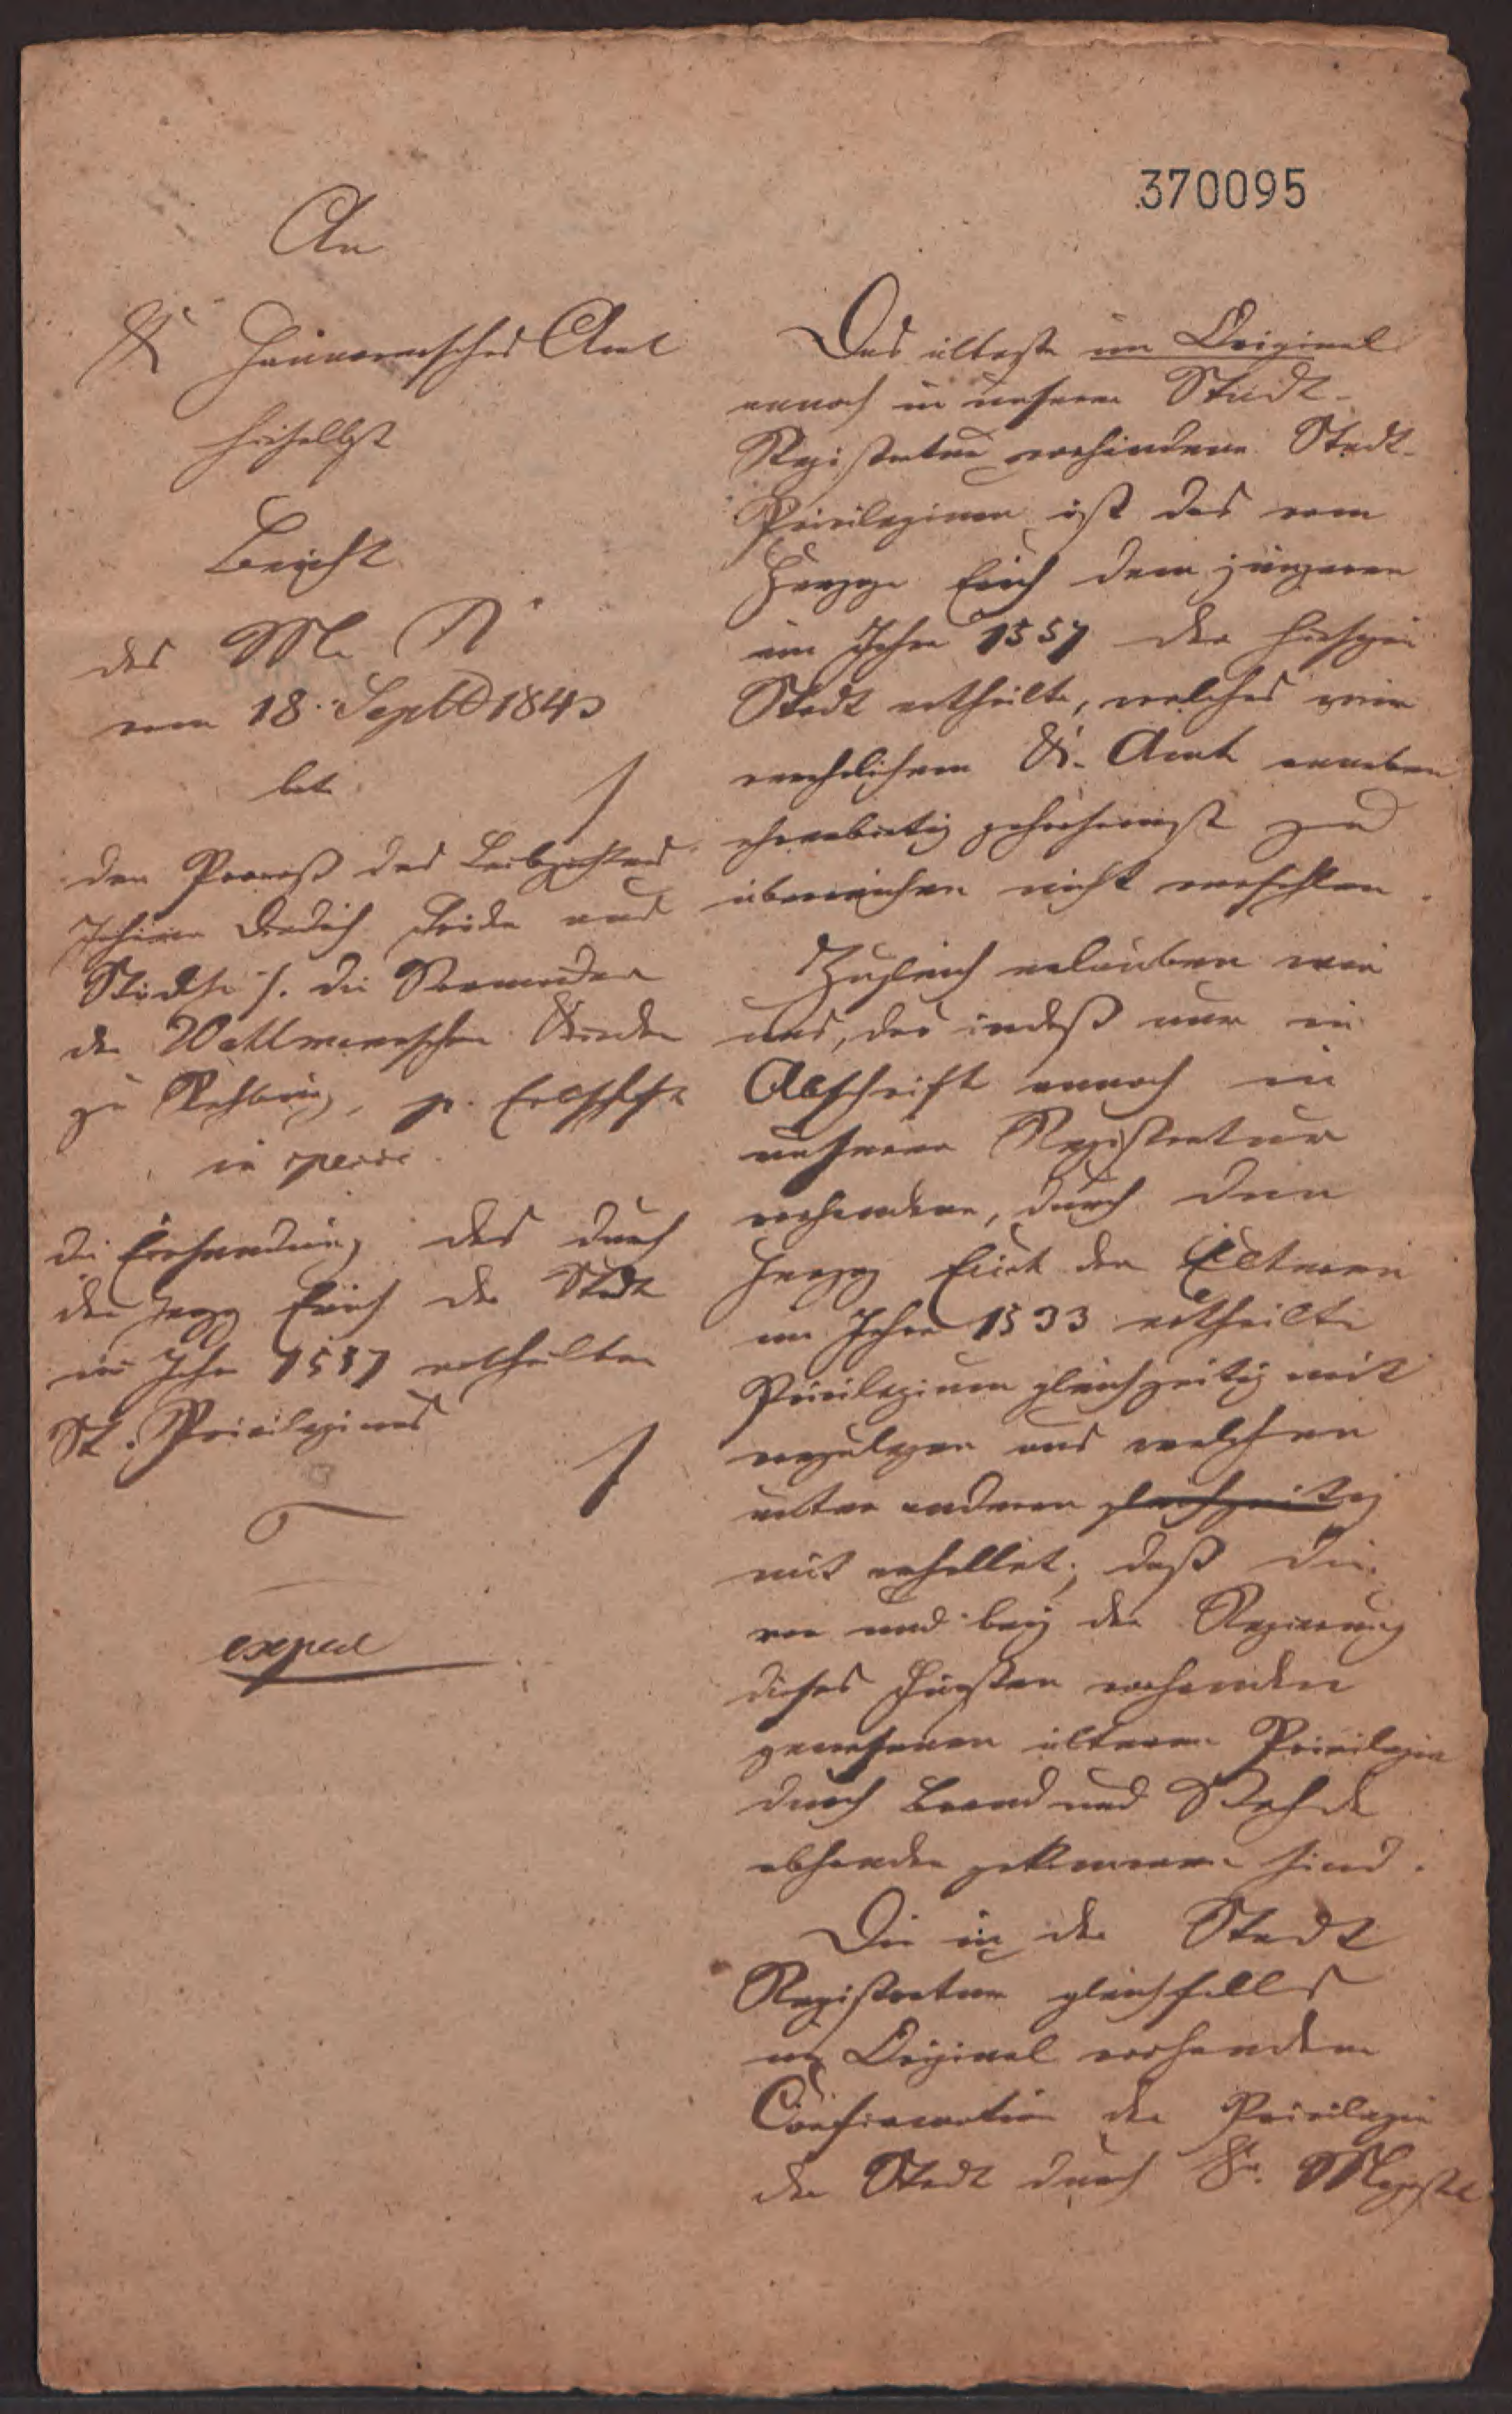 370095
An
K Hannoversches Amt
hieselbst
Bericht
des M. R.
vom 18. Septb 1843
bet.
den Proceß des Leibzüchters
Johann Diedrich und
die Vormünder
der Kinder
zu Rehburg, p.
in specie
die des durch
den Herzog Erich der Stadt
im Jahr 1557 ertheilten
St. Privilegiums
exped
Das älteste im Original
annoch in unserer Stadt-
Registratur vorhandene Stadt-
Privilegium ist das vom
Herzoge Erich dem jüngeren
im Jahre 1557 der hiesigen
Stadt ertheilte, welches wir
K. Amte anneben
ehrerbietig gehorsamst zu
überreichen nicht verfehlen.
Zugleich erlauben wir
uns, das indeß nur in
Abschrift annoch in
unserer Registratur
vorhandene, durch den
Herzog Erich den Älteren
im Jahre 1533 ertheilte
Privilegium gleichzeitig mit
vorzulegen aus welchem
unter anderen gleichzeitig
mit erhellet, daß die
vor und bey der Regierung
dieses Fürsten vorhanden
gewesenen älteren Privilegien
durch Brand und Fehde
abhanden gekommen sind.
Die in der Stadt
Registratur gleichfalls
im Original vorhandene
Confirmation der Privilegien
der Stadt durch Sr. Majestät